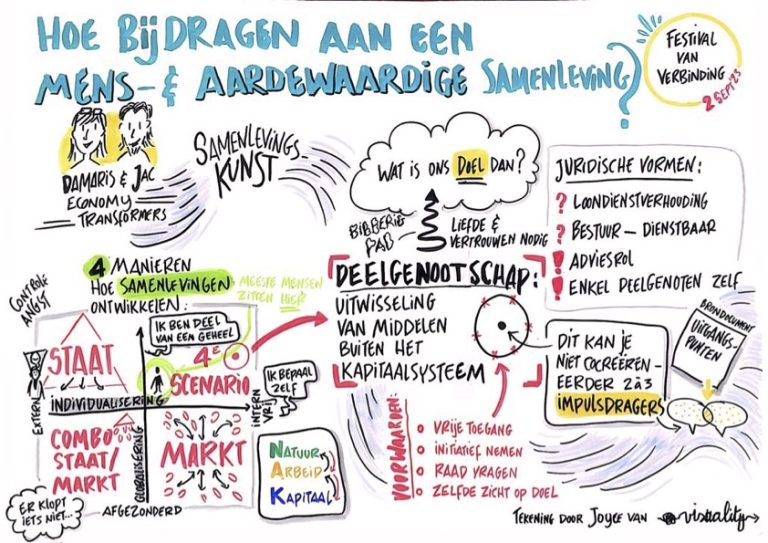 HOE BIJDRAGEN AAN EEN
MENS- & AARDEWAARDIGE SAMENLEVING?
FESTIVAL
VAN
VERBINDING
2 SEPT '23
DAMARIS & JAC
ECONOMY
TRANSFORMERS
SAMENLEVINGS
KUNST
WAT IS ONS DOEL DAN?
BIBBERIG
PAD
LIEFDE &
VERTROUWEN NODIG
JURIDISCHE VORMEN:
? LOONDIENSTVERHOUDING
? BESTUUR - DIENSTBAAR
! ADVIESROL
! ENKEL DEELGENOTEN ZELF
4 MANIEREN
HOE SAMENLEVINGEN
ONTWIKKELEN:
MEESTE MENSEN
ZITTEN HIER
CONTROLE
ANGST
IK BEN DEEL
VAN EEN GEHEEL
STAAT
4E
SCENARIO
EXTERN
INDIVIDUALISERING
INTERN
VRIJ
IK BEPAAL
ZELF
COMBO
STAAT/
MARKT
GLOBALISERING
MARKT
ER KLOPT
IETS NIET...
AFGEZONDERD
NATUUR
ARBEID
KAPITAAL
DEELGENOOTSCHAP:
UITWISSELING
VAN MIDDELEN
BUITEN HET
KAPITAALSYSTEEM
VOORWAARDEN:
VRIJE TOEGANG
INITIATIEF NEMEN
RAAD VRAGEN
ZELFDE ZICHT OP DOEL
DIT KAN JE
NIET COCREËREN -
EERDER 2 À 3
IMPULSDRAGERS
BRONDOCUMENT
UITGANGS-
PUNTEN
TEKENING DOOR JOYCE VAN visuality